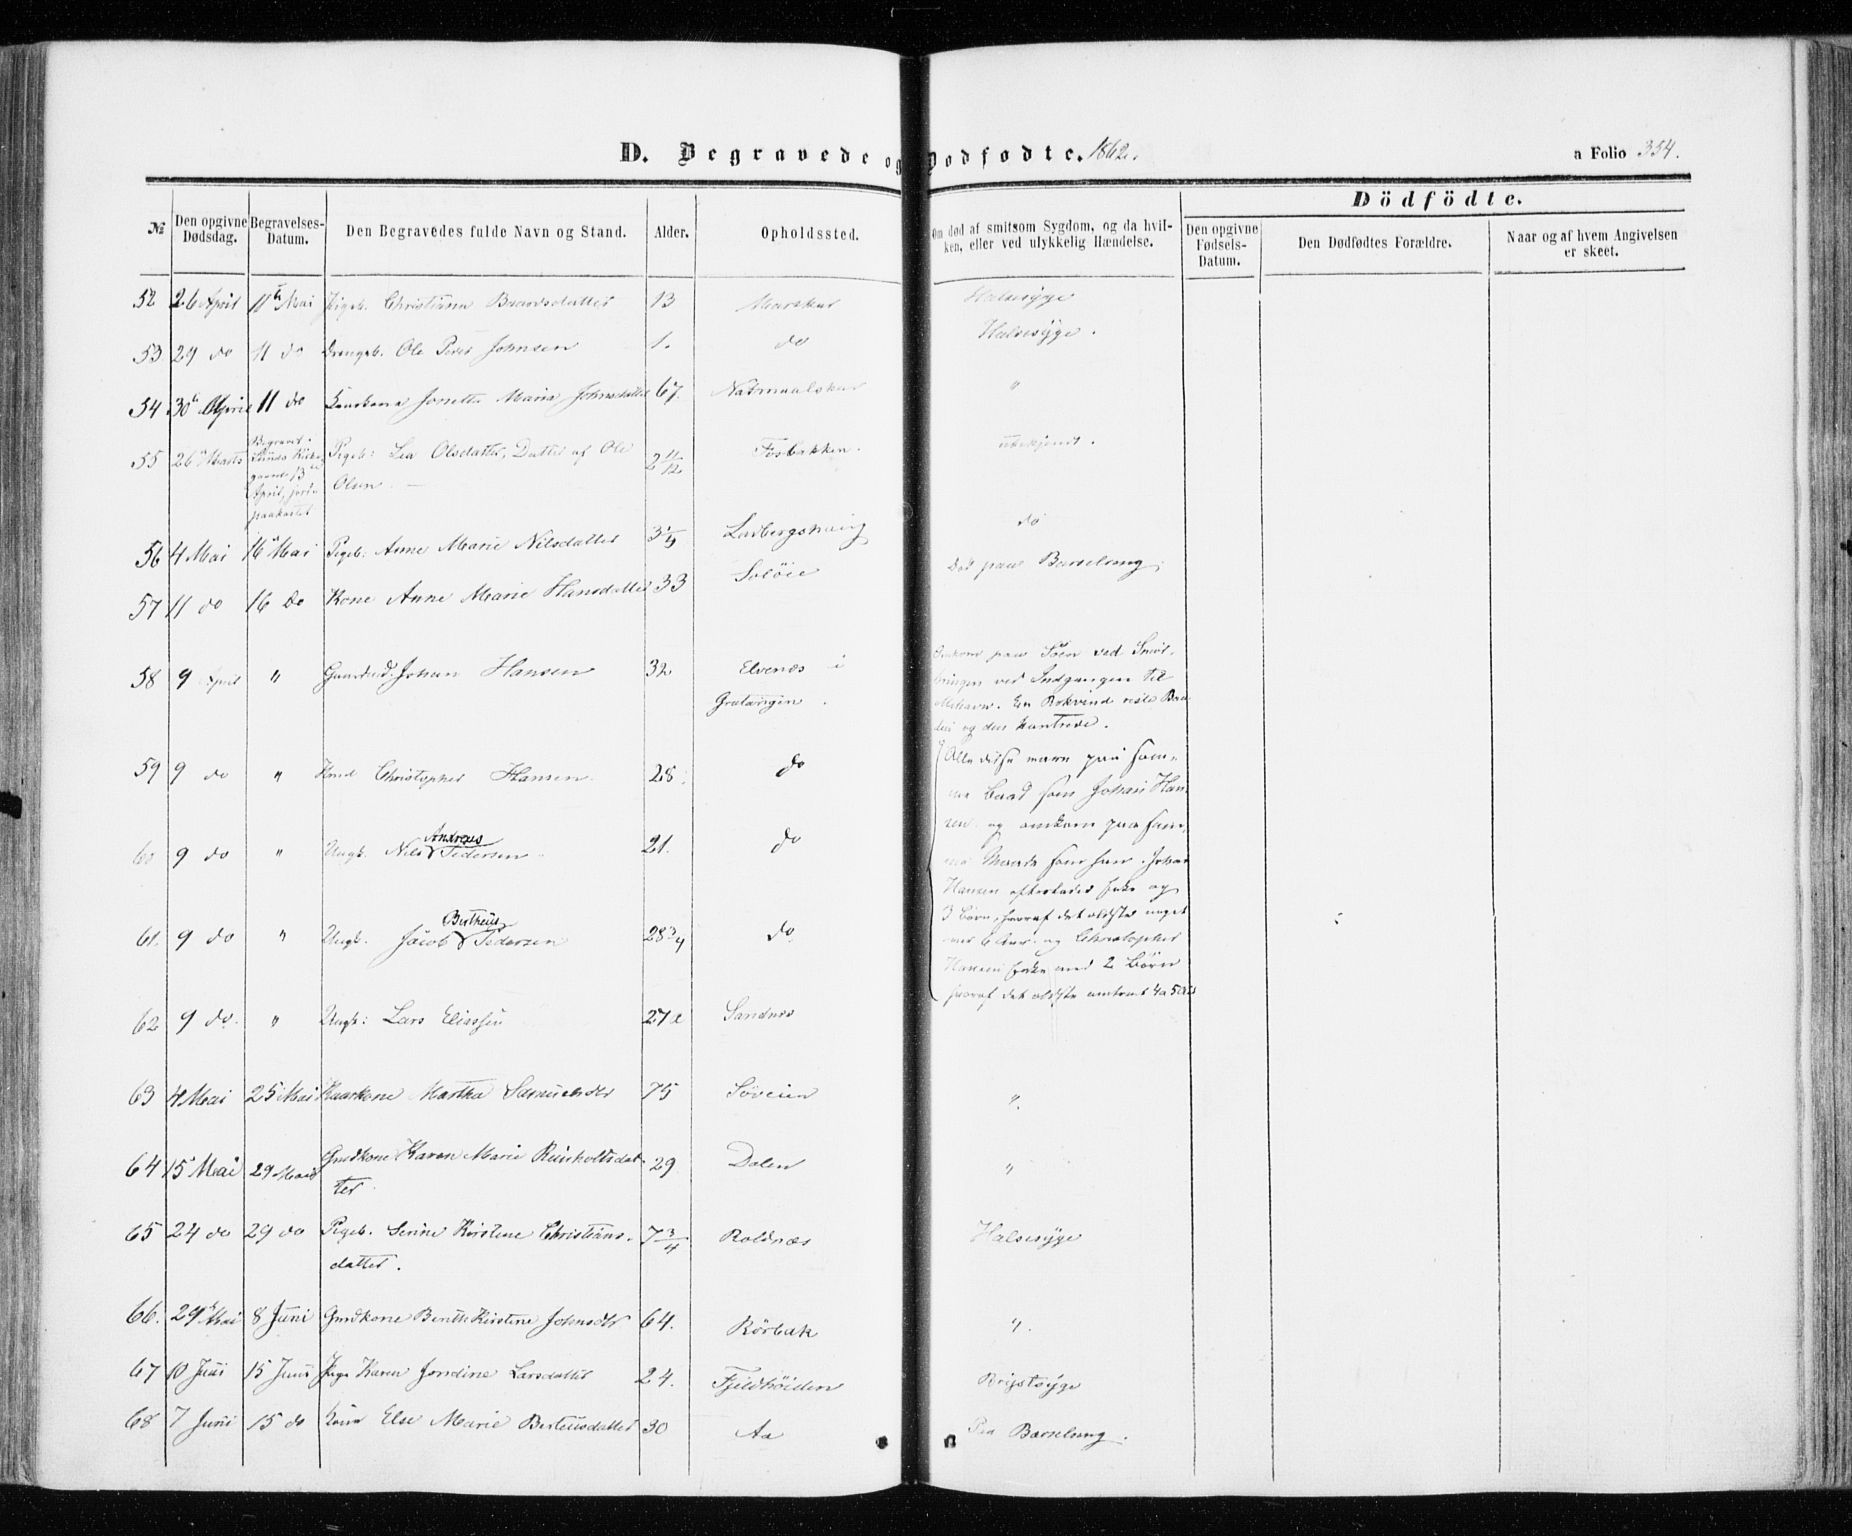 D. Begravede og Dødfødte. 1862. a Folio 354.
Dödfödte.
№ Den opgivne Dødsdag. Begravelses-Datum. Den Begravedes fulde Navn og Stand. Alder. Opholdssted. Om død af smitsom Sygdom, og da hvilken, eller ved ulykkelig Hændelse. Den opgivne Fødsels-Datum. Den Dødfødtes Forældre. Naar og af hvem Angivelsen er skeet.
52 26 April 11te Mai Pigeb. Christiana Baardsdatter 13 Halsesyge
53 29 do 11 do Drengeb. Ole Peder Johnsen 1. do Halsesÿge.
54 30te April 11 do Maria Johnsdatter 67. "
55 26 Marts Begravet 13de April, jords paakastet Pigeb: Lea Olsdatter, Datter af Ole
Olsen 2 11/12 Fosbakken. ubekjendt.
56 4 Mai 16 Mai Pigeb: Anne Marie Nilsdatter do
57 11 do 16 do Kone Anne Marie Hansdatter 33 Soløie Død paa Barselseng.
58 9 April " Johan Hansen 32 Elvenæs i
Gratangen. paa Søen ved
ved Indgangen til
En Rokvind
og den kantrede.
59 9 do " Christopher Hansen 28 do
60 9 do " Ungk. Nils Andreas Pedersen 21. do
61. 9 do " Ungk. Jacob Bertheus Pedersen 28 3/4 do
Alle disse vare paa sam-
me Baad som Johan Han-
sen og omkom paa sam-
me Maade som han. Johan
Hansen efterlader Enke og
3 Børn, hvoraf det ældste noget
over 6 Aar. og Christopher
Hansen Enke med 2 Børn
hvoraf det ældste omtrent 4 a 5 Aar
62 9 do. " Ungk: Lars Eliassen 27 Sandnes
63 4 Mai 25 Mai Martha 75 Søveien "
64 15 Mai 29 Mai Gmdkone Karen Marie Reinholtsdat-
ter 29 Dalen "
65 24 do 29 do Pigeb. Serine Kirstine Christians-
datter. 7 3/4 Roldnæs Halsesÿge
66. 29 Mai 8 Juni Gmdkone Kirstine Johnsdtr 64. Rörbak "
67 10 Juni 15 Juni Pige Karen Jondine Larsdatter 24. Fjeldhöiden Brÿstsÿge
68 7 Juni 15 do Kone Else Marie Berteusdatter 30 Aa Paa Barselseng.